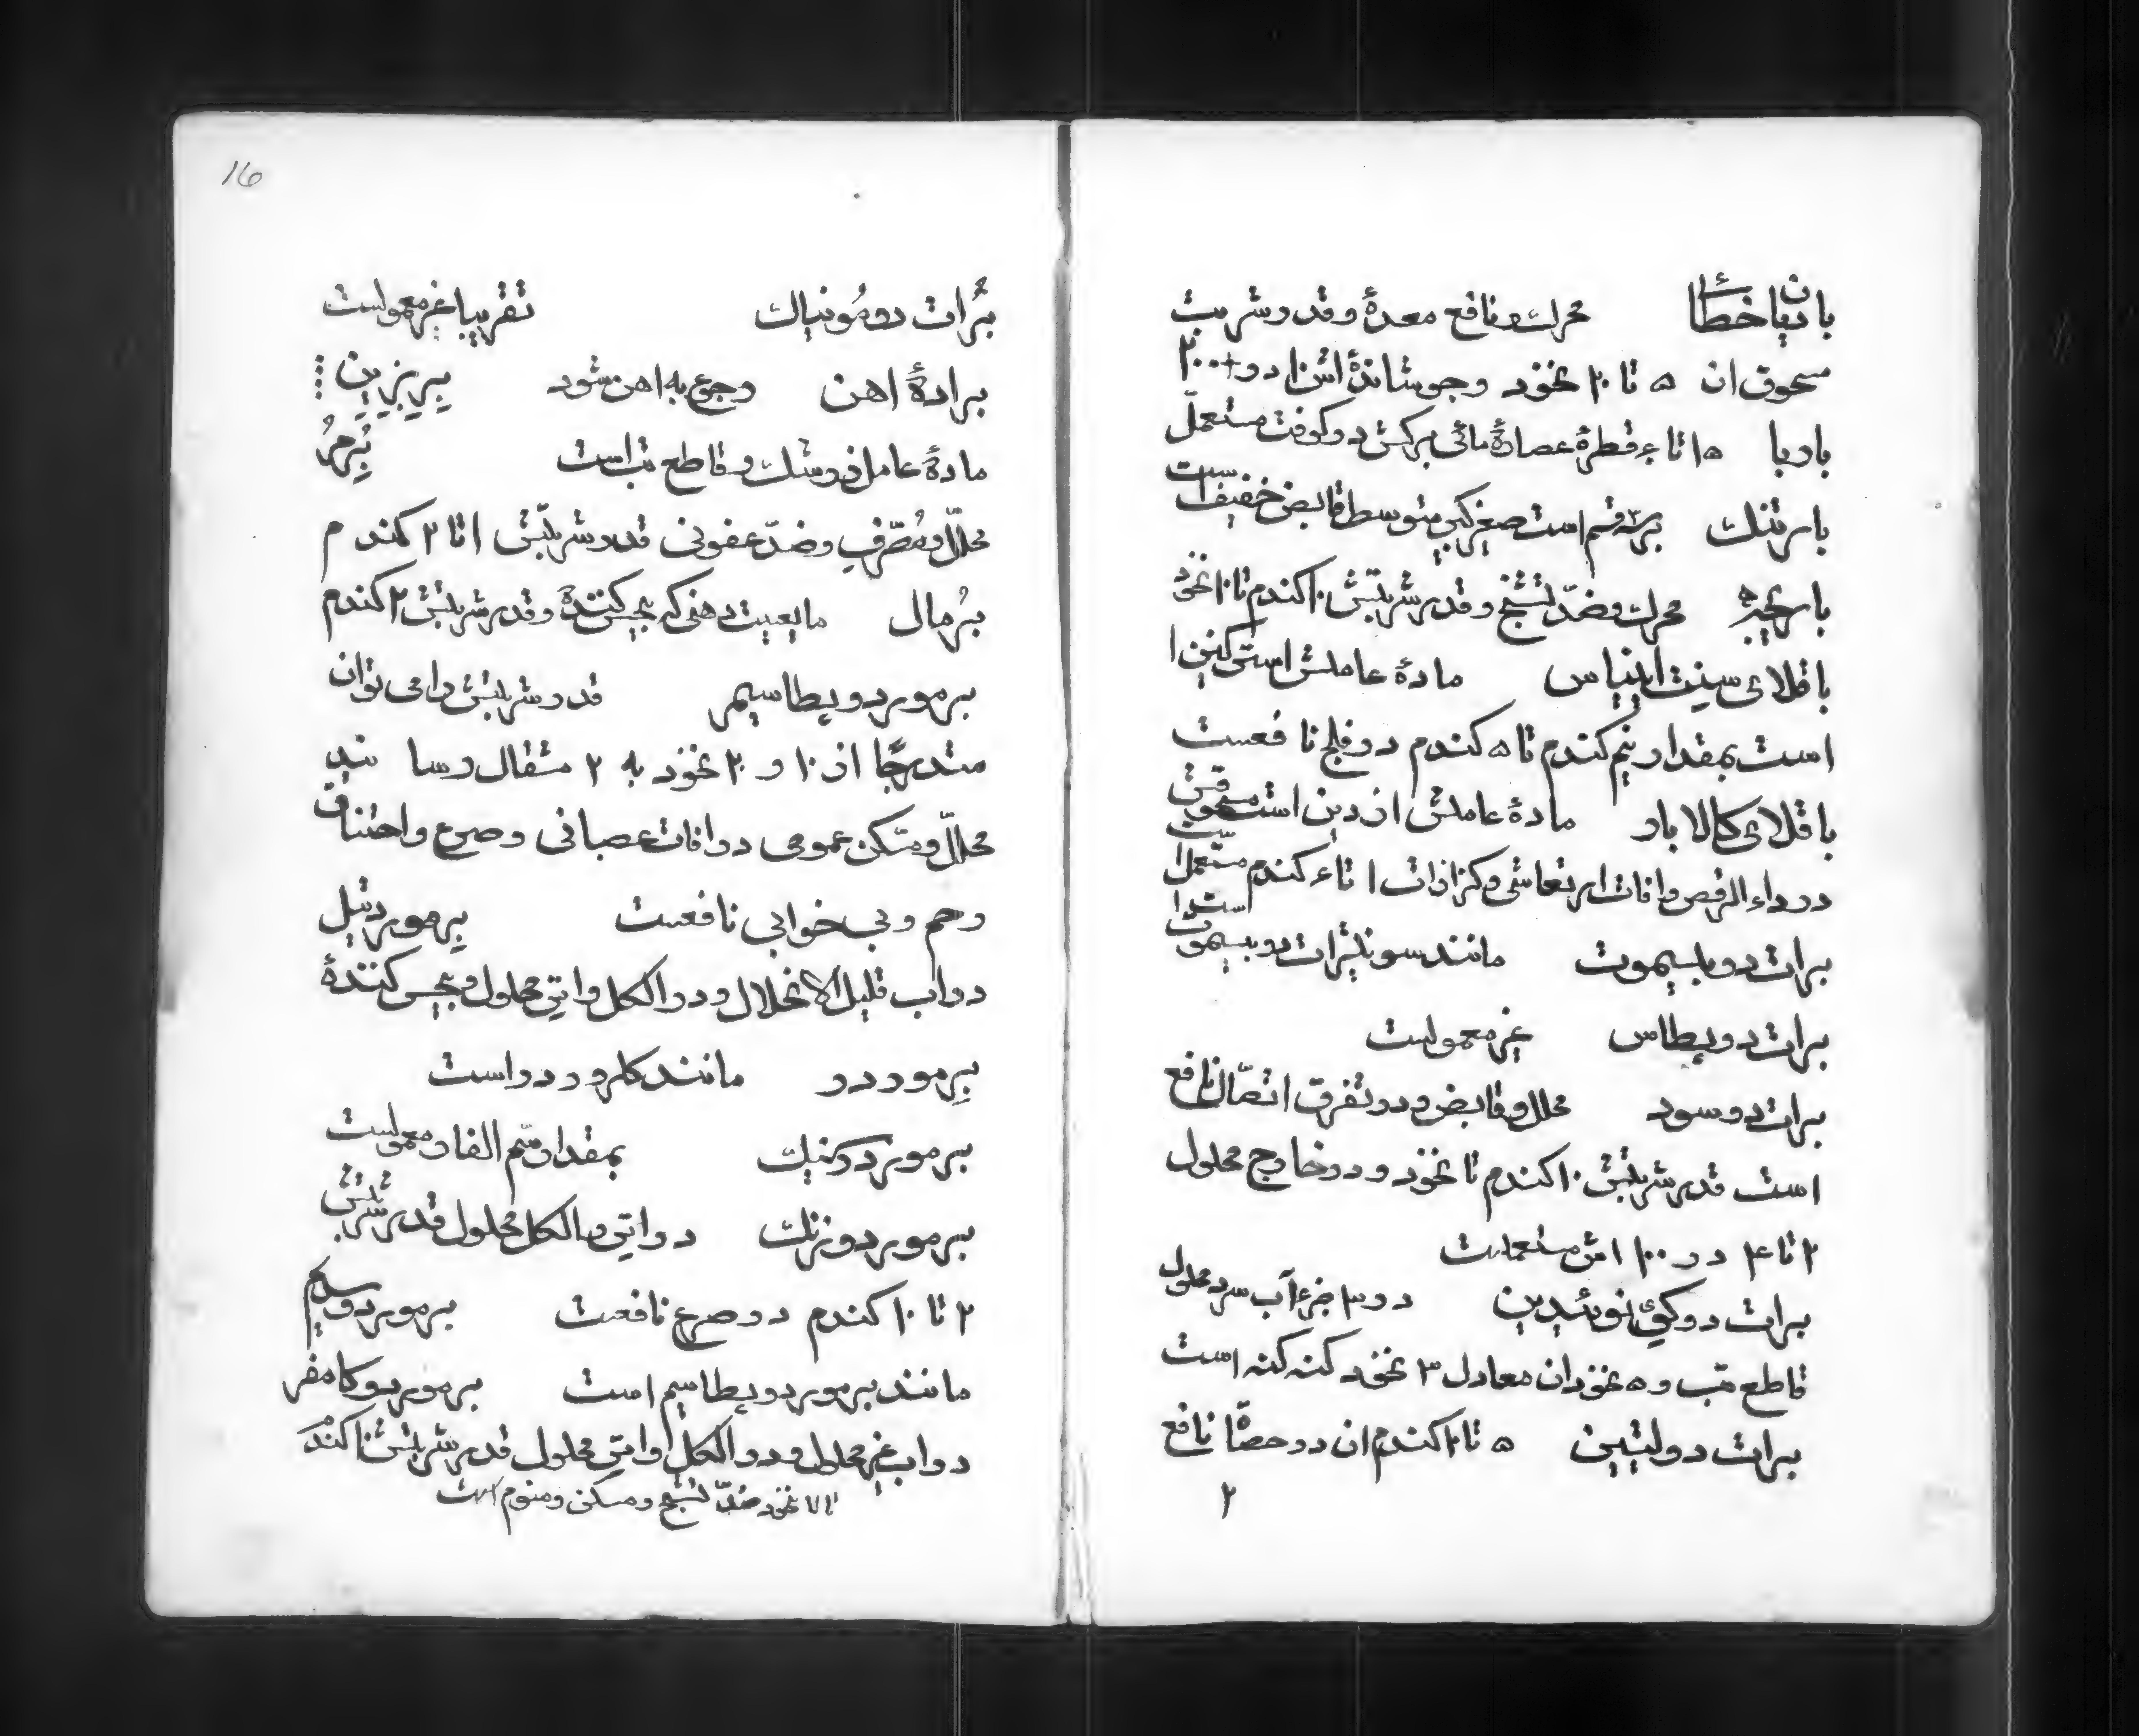 بادیان خطائی محرک و نافع معده و قدر شربت
مسحوق ان ۵ تا ۲۰ نخود و جوشانده اش ۱۰ در ۲۰۰
باریا ۱۵ تا قطره عصاره مائی برکش در کوفت مستعمل
بارتنک برسه قسم است صغیر کبیر متوسط قابض خفیف است
محرک و ضدّ تشنج و قدر شربتش ۱۰ کندم تا ۱۰ نخود
باقلای سینت اینیاس مادهٔ عاملش استرکنین
است بمقدار نیم کندم تا ۵ کندم در فلج نافعست
باقلای کالابار مادهٔ عاملش ازرین است مسحوقش
در داء الرقص و افات ارتعاشی و کزازات ۱ تا ۴ کندم مستعمل است
برات دو بیسموت مانند سونیترات دو بیسموت است
برات دو پطاس غیر معمولست
برات دو سود محلل و قابض و در تفرق اتصال نافع
است قدر شربتش ۱۰ کندم تا نخود و در خارج محلول
۲ تا ۴ در ۱۰۰ اش مستعملست
برات دو در ۳ جزء آب سرد محلول
قاطع تب و ۵ نخود ان معادل ۳ نخود کنه کنه است
برات دو لیتین ۵ تا ۲۰ کندم ان در حصاة نافع
۲
16
برات دو مونیاک تقریبا غیر معمولست
برادهٔ اهن رجوع به اهن شود پریزین
مادهٔ عامل و قاطع تب است برم
محلل و مصرف و ضدّ عفونی قدر شربتش ۱ تا ۲ کندم
برمال مایعیت دهنی که بیحس کننده و قدر شربتش ۲ کندم
برمور دو پطاسیم قدر شربتش را می توان
متدرجا از ۱۰ و ۲۰ نخود به ۲ مثقال رسانید
محلل و مسکن عمومی در افات عصبانی و صرع و اختناق
رحم و بی خوابی نافعست برمور دتیل
در اب قلیل الانحلال و در الکل و اتر محلول و بیحس کننده
برمور در مانند کلرور در است
برمور دارسنیک بمقدار سم الفار معمولست
برمور دو زنک در اتر و الکل محلول قدر شربتش
۲ تا ۱۰ کندم در صرع نافعست برمور دو سدیم
مانند برمور دو پطاسیم است برمور دو کامفر
در اب غیر محلول و در الکل و اتر محلول قدر شربتش کندم
تا نخود ضدّ تشنج و مسکن و منوم است